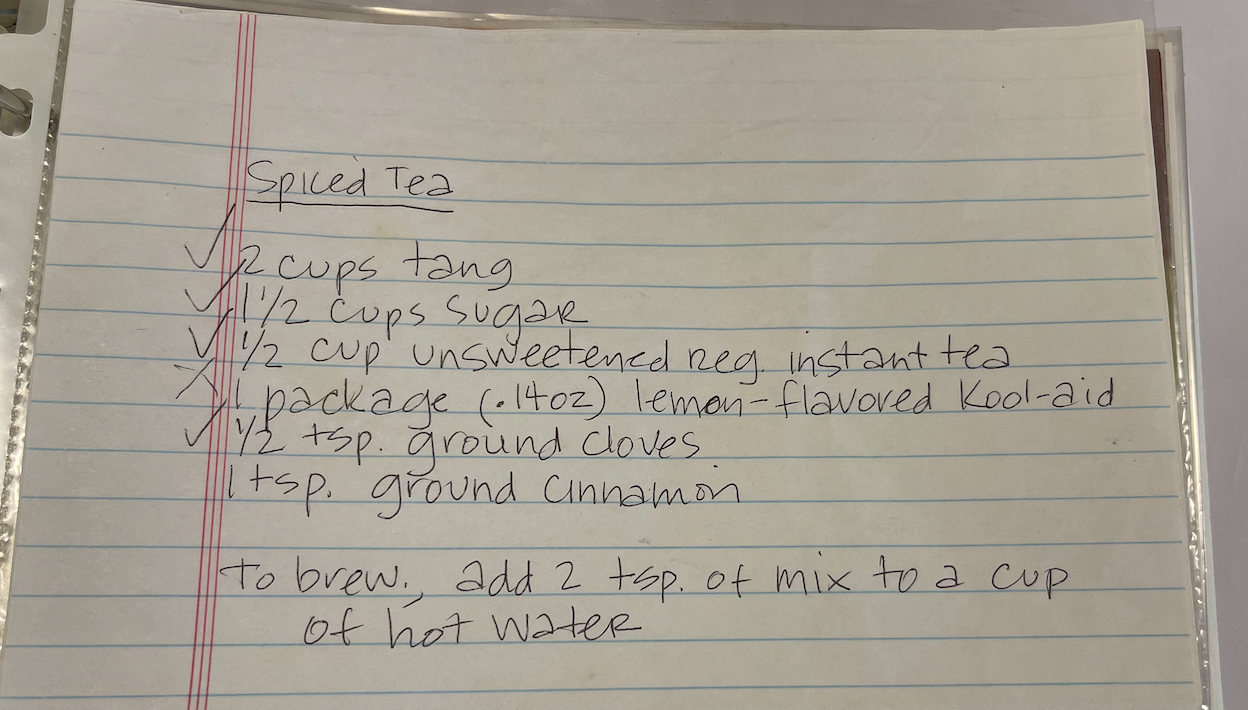 Spiced Tea
✓ 2 cups tang
✓ 1 1/2 cups sugar
✓ 1/2 cup unsweetened reg. instant tea
1 package (.14oz) lemon-flavored Kool-aid
✓ 1/2 tsp. ground cloves
1 tsp. ground cinnamon
To brew, add 2 tsp. of mix to a cup
of hot water